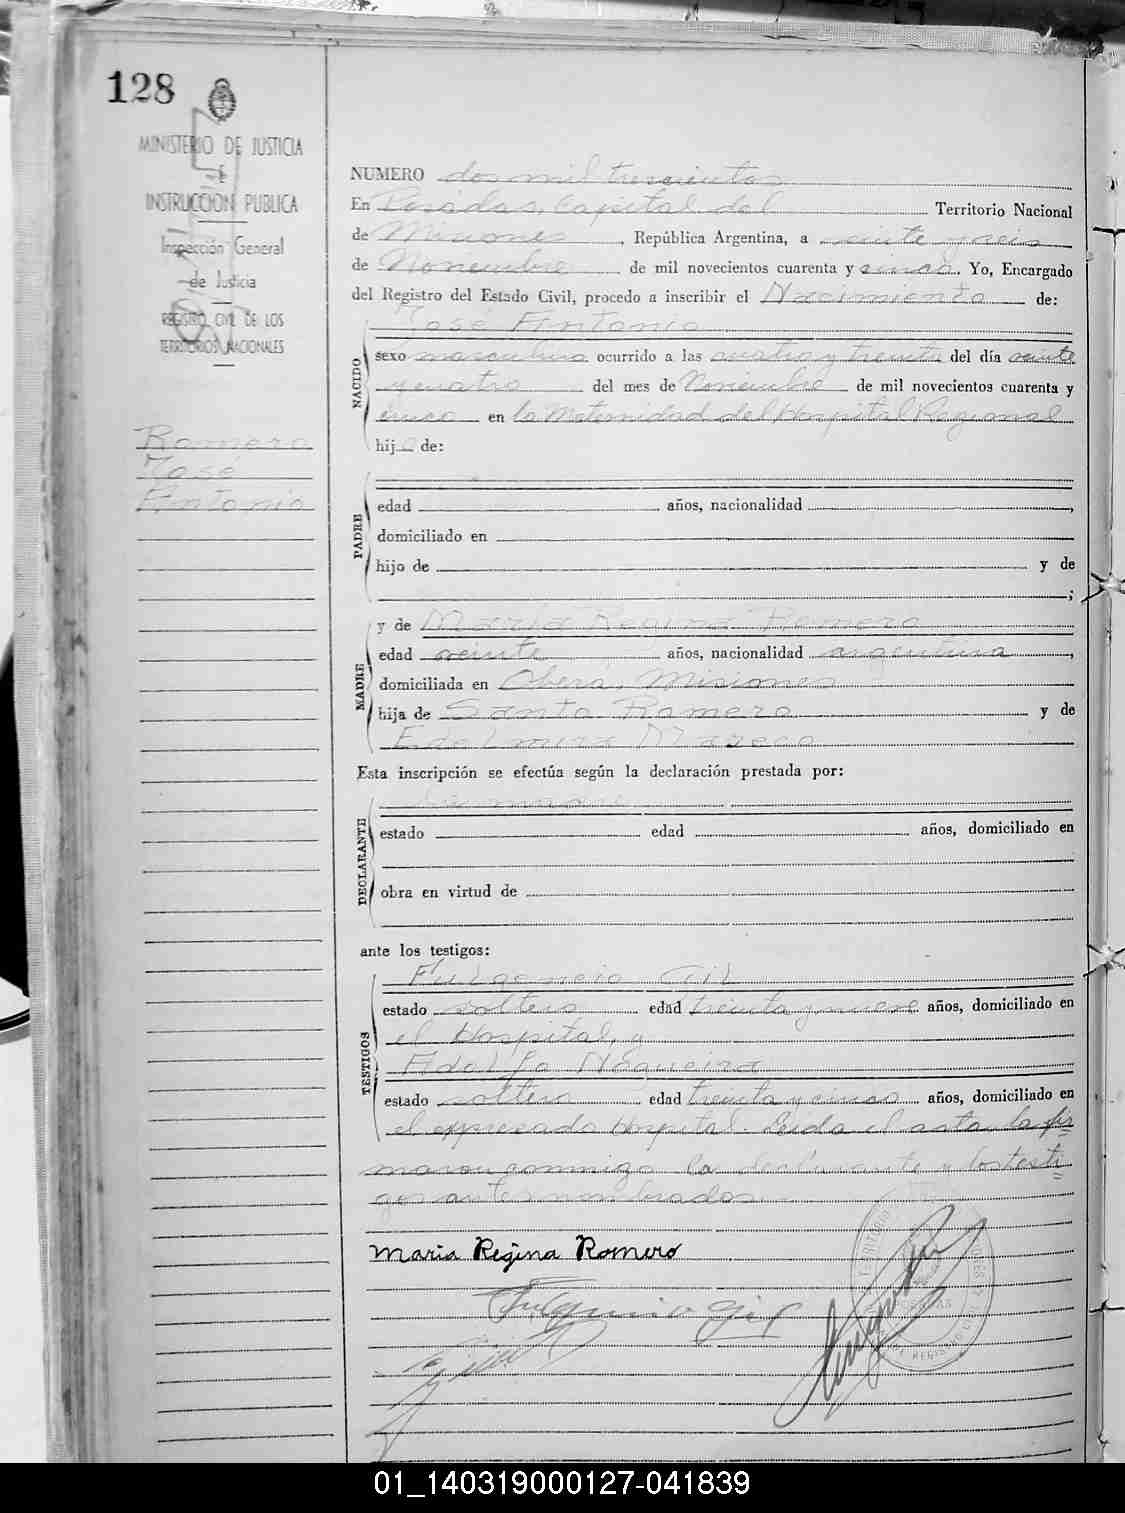 128
MINISTERIO DE JUSTICIA
E
INSTRUCCION PUBLICA
Inspección General
de Justicia
REGISTRO CIVIL DE LOS
TERRITORIOS NACIONALES
Romero
José
Antonio
NUMERO dos mil trescientos
En Posadas, Capital del Territorio Nacional
de Misiones, República Argentina, a veinte y seis
de Noviembre de mil novecientos cuarenta y cinco. Yo, Encargado
del Registro del Estado Civil, procedo a inscribir el Nacimiento de:
NACIDO
José Antonio
sexo masculino ocurrido a las cuatro y treinta del día veinte
y cuatro del mes de Noviembre de mil novecientos cuarenta y
cinco en la Maternidad del Hospital Regional
hijo de:
PADRE
edad años, nacionalidad ,
domiciliado en
hijo de y de
;
MADRE
y de María Regina Romero
edad veinte años, nacionalidad argentina,
domiciliada en Oberá, Misiones
hija de Santo Romero y de
Edelmira
Esta inscripción se efectúa según la declaración prestada por:
DECLARANTE
La madre
estado edad años, domiciliado en
obra en virtud de
ante los testigos:
TESTIGOS
Fulgencio Gil
estado soltero edad treinta y nueve años, domiciliado en
el Hospital, y
Adolfo Nogueira
estado soltero edad treinta y cinco años, domiciliado en
el expresado Hospital. Leída el acta, la fir=
maron conmigo la declarante y los testi=
gos antes nombrados.
Maria Regina Romero
Fulgencio Gil
01_140319000127-041839